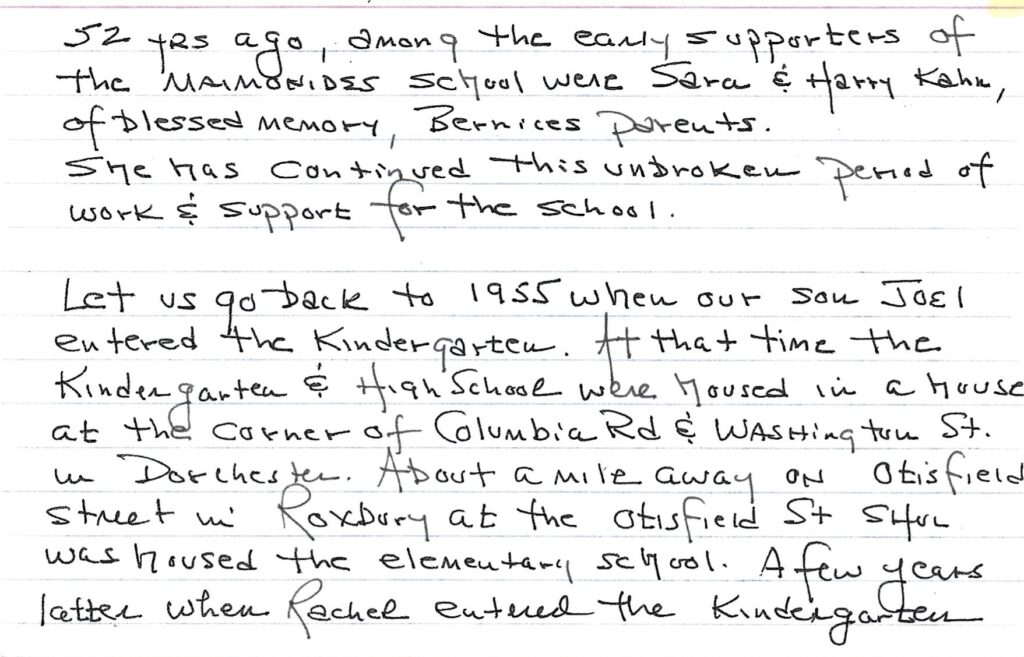 52 yrs ago, among the early supporters of
the MAIMONIDES school were Sara & Harry Kahn,
of blessed memory, Bernices parents.
She has continued this unbroken period of
work & support for the school.
Let us go back to 1955 when our son JOEl
entered the Kindergarten. At that time the
Kindergarten & High School were housed in a house
at the corner of Columbia Rd & WASHington St.
in Dorchester. About a mile away on Otisfield
street in Roxbury at the Otisfield St Shul
was housed the elementary school. A few years
latter when Rachel entered the Kindergarten